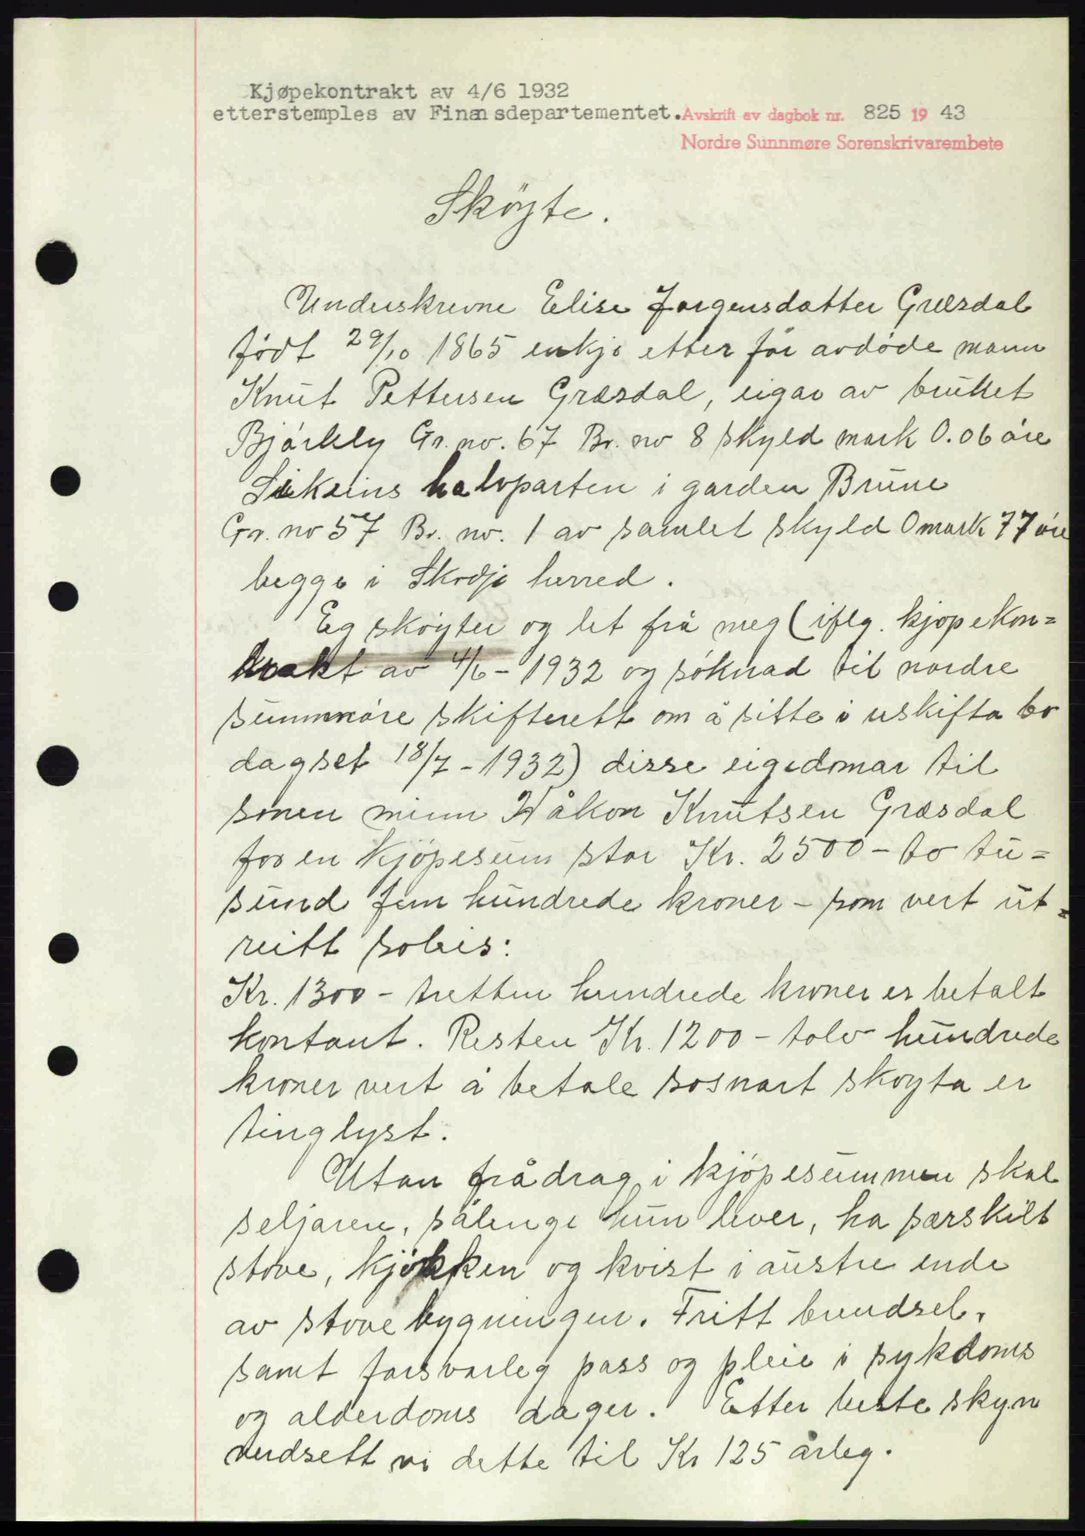 Kjøpekontrakt av 4/6 1932
etterstemples av Finansdepartementet. Avskrift av dagbok nr. 825 19 43
Nordre Sunnmøre Sorenskrivarembete
Skøyte.
Underskrevne Elise Jørgensdatter Græsdal
født 29/10 1865 enkje etter før avdøde mann
Knut Pettersen Græsdal, eigar av bruket
Bjørkly Gr. no. 67 Br. no 8 skyld mark 0.06 øre
halvparten i garden Brune
Gr. no 57 Br. no. 1 av samlet skyld 0 mark 77 øre
begge i Skodje herred.
Eg skøyter og let frå meg (iflg. kjøpekon=
trakt av 4/6 - 1932 og søknad til nordre
sunnmøre skifterett om å sitte i uskifta bo
dagset 18/7 - 1932) disse eigedomar til
sønen minn Håkon Knutsen Græsdal
for en kjøpesum stor Kr. 2500 - to tu=
sund fem hundrede kroner - som vert ut=
reitt soleis:
Kr. 1300 - tretten hundrede kroner er betalt
kontant. Resten Kr. 1200 - tolv hundrede
kroner vert å betale sosnart skøyta er
tinglyst.
Utan frådrag i kjøpesummen skal
seljaren, sålenge hun lever, ha særskilt
stove, kjøkken og kvist i austre ende
av stovebygningen. Fritt brendsel,
samt forsvarleg pass og pleie i sykdoms
og alderdoms dager. Etter beste skyn
verdsett vi dette til Kr 125 årleg.